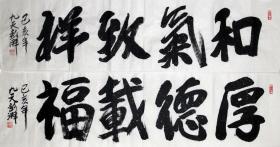 和氣致祥
己亥年
厚德載福
己亥年